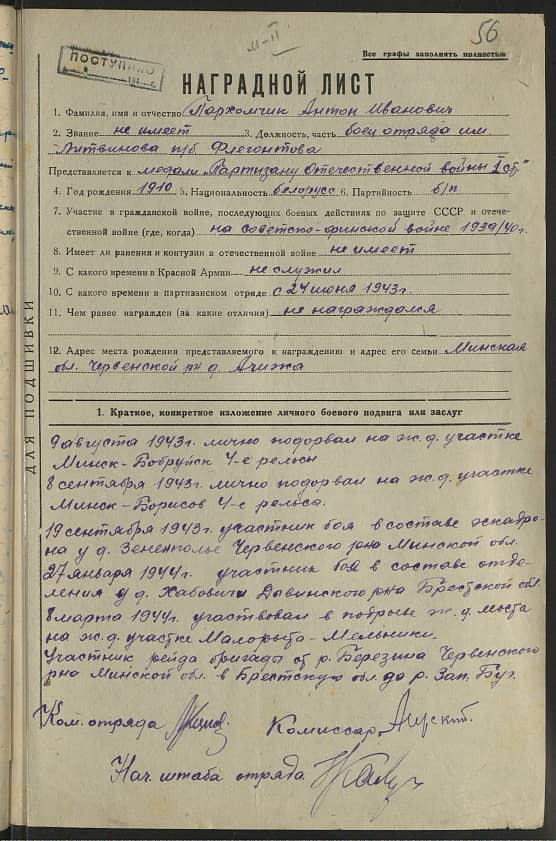 м-II
56
Все графы заполнять полностью
ПОСТУПИЛО
НАГРАДНОЙ ЛИСТ
1. Фамилия, имя и отчество Пархомчик Антон Иванович
2. Звание не имеет 3. Должность, часть боец отряда им.
Литвинова п/б Флегонтова
Представляется к медали „Партизану Отечественной войны I ст."
4. Год рождения 1910 5. Национальность белорусс 6. Партийность б/п
7. Участие в гражданской войне, последующих боевых действиях по защите СССР и отече-
ственной войне (где, когда) на советско-финской войне 1939/40 г.
8. Имеет ли ранения и контузии в отечественной войне не имеет
9. С какого времени в Красной Армии не служил
10. С какого времени в партизанском отряде с 24 июня 1943 г.
11. Чем ранее награжден (за какие отличия) не награждался
12. Адрес места рождения представляемого к награждению и адрес его семьи Минская
обл. Червенской р-н д.
ДЛЯ ПОДШИВКИ
1. Краткое, конкретное изложение личного боевого подвига или заслуг
9 августа 1943 г. лично подорвал на ж.д. участке
Минск-Бобруйск 4-е рельсы
8 сентября 1943 г. лично подорвал на ж.д. участке
Минск-Борисов 4-е рельса.
19 сентября 1943 г. участник боя в составе эскадро-
на у д. Червенского р-на Минской обл.
27 января 1944 г. участник боя в составе отде-
ления у д. Хабовичи Дивинского р-на Брестской обл.
8 марта 1944 г. участвовал в подрыве ж.д. моста
на ж.д. участке Малорыта-Мельники.
Участник рейда бригады от р. Березина Червенского
р-на Минской обл. в Брестскую обл. до р. Зап. Буг.
Ком. отряда Комиссар
Нач. штаба отряда